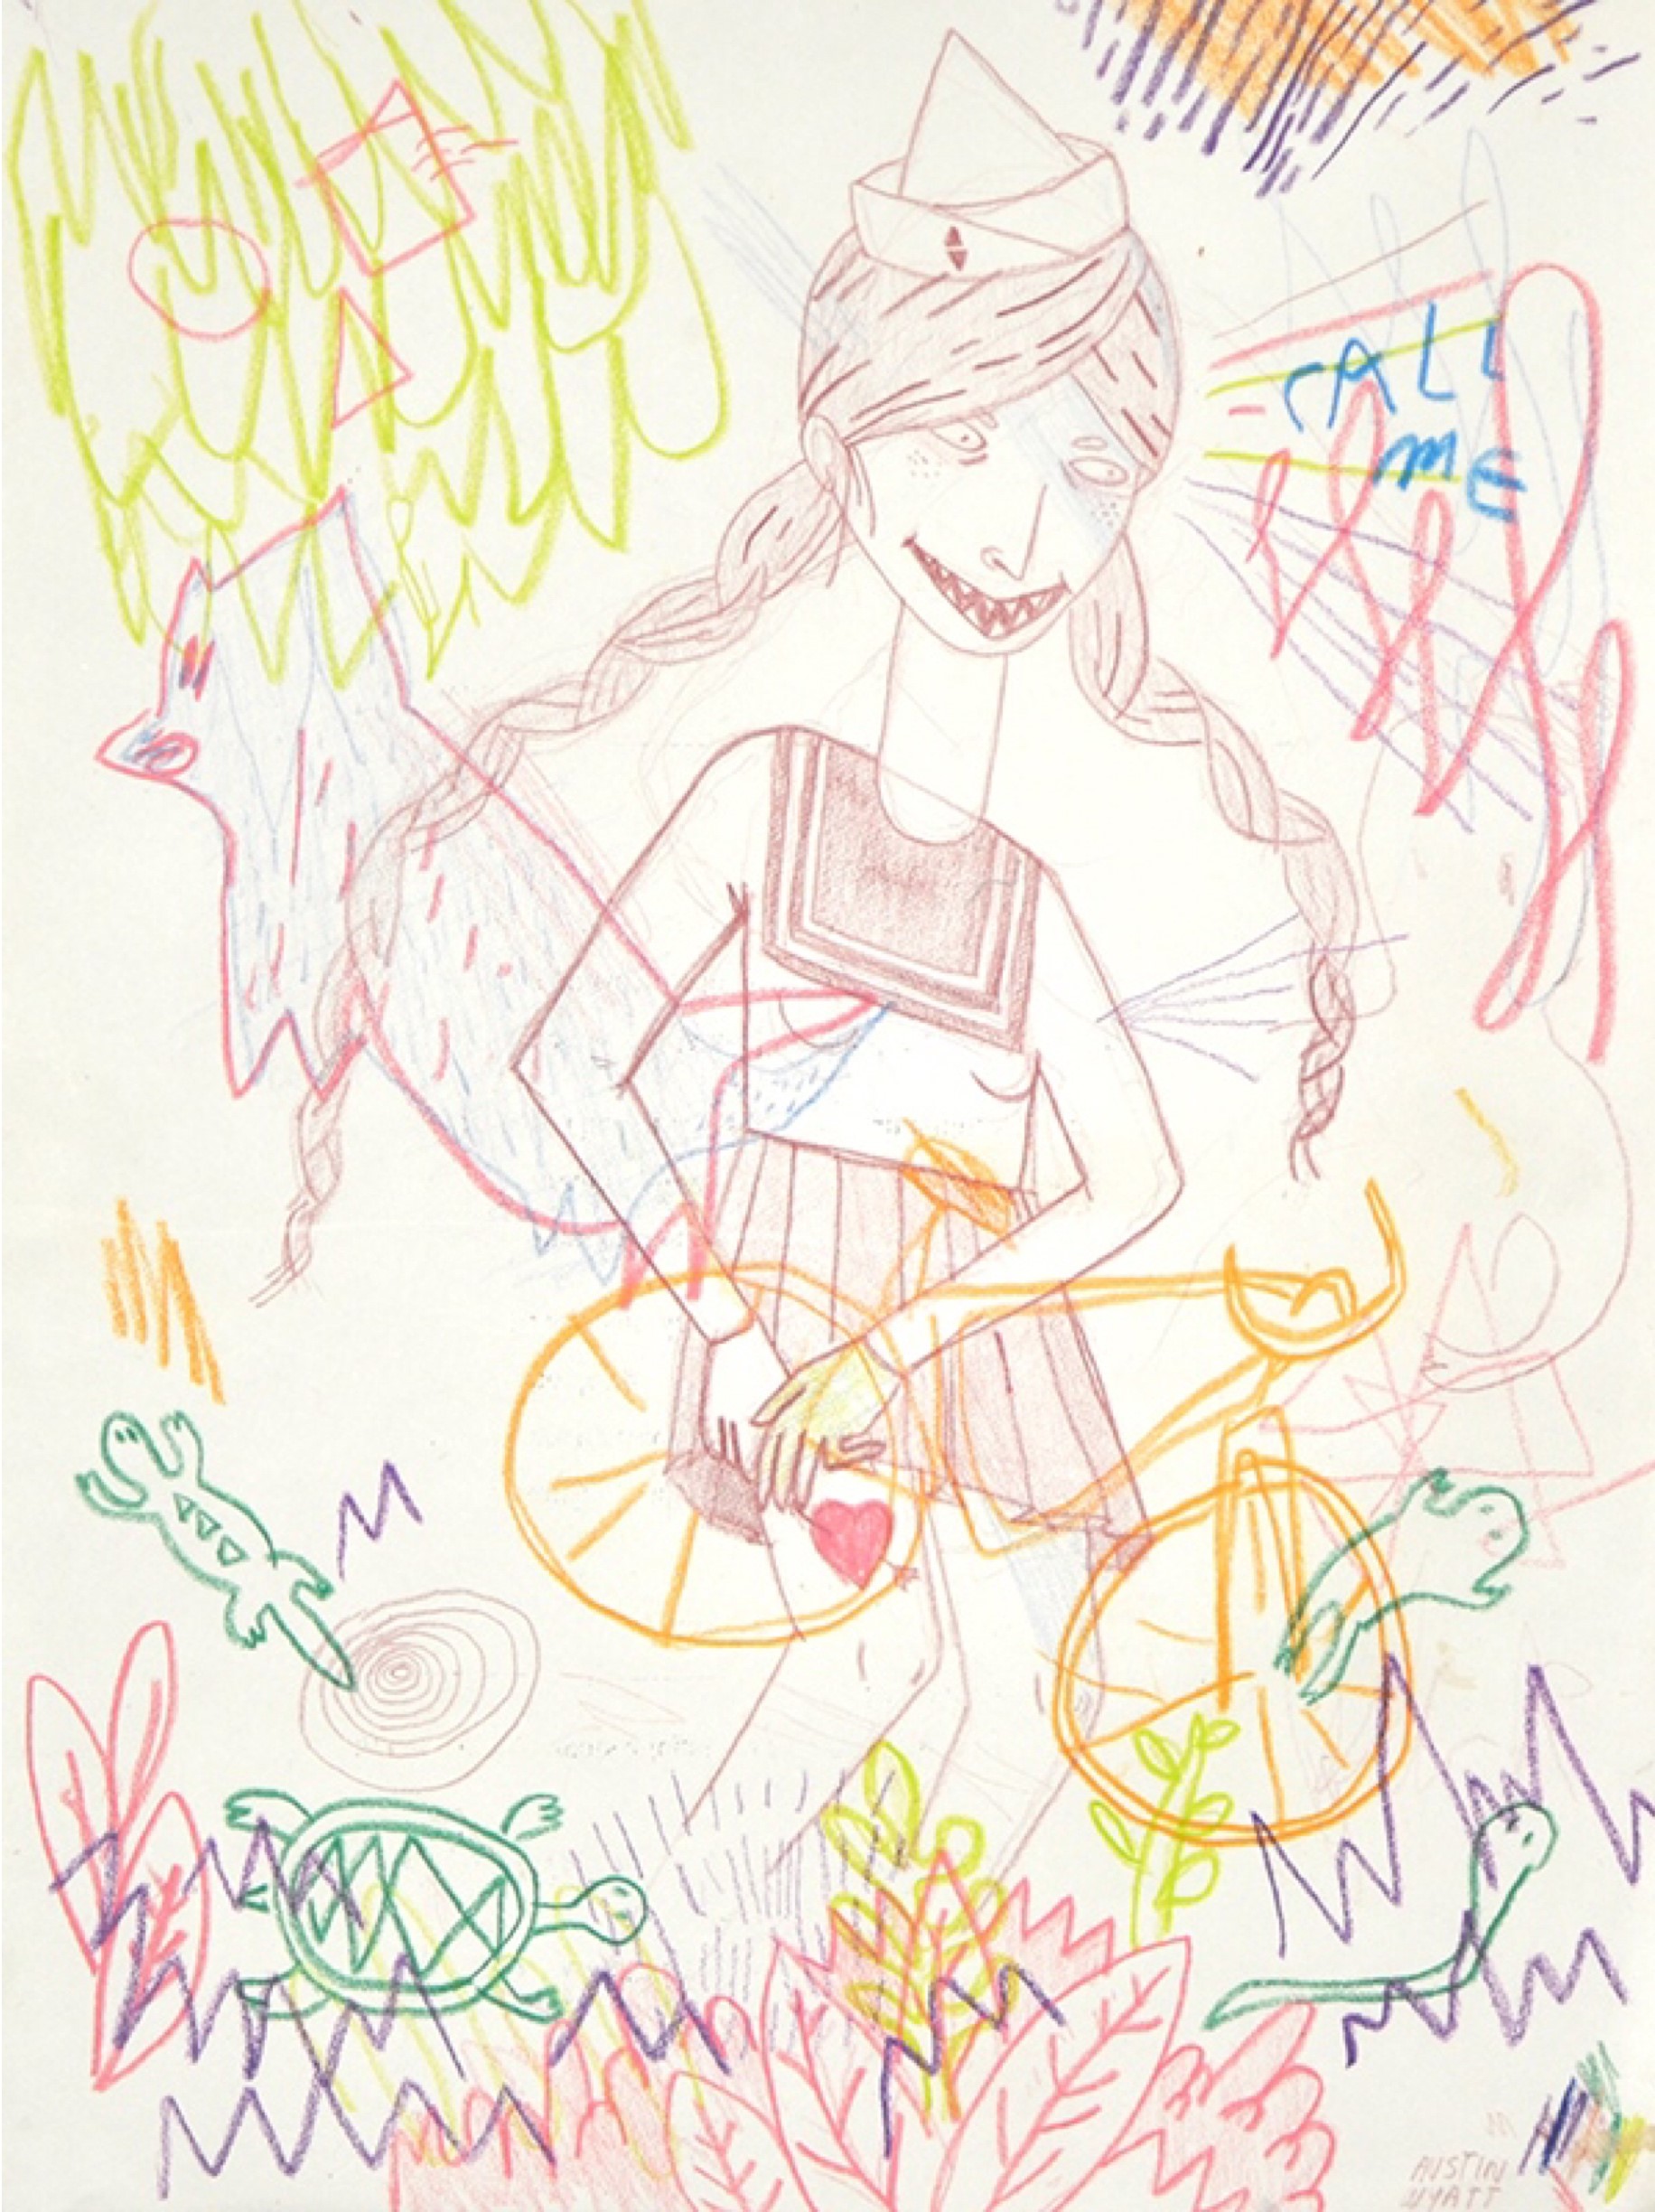 CALL
ME
AUSTIN
WYATT